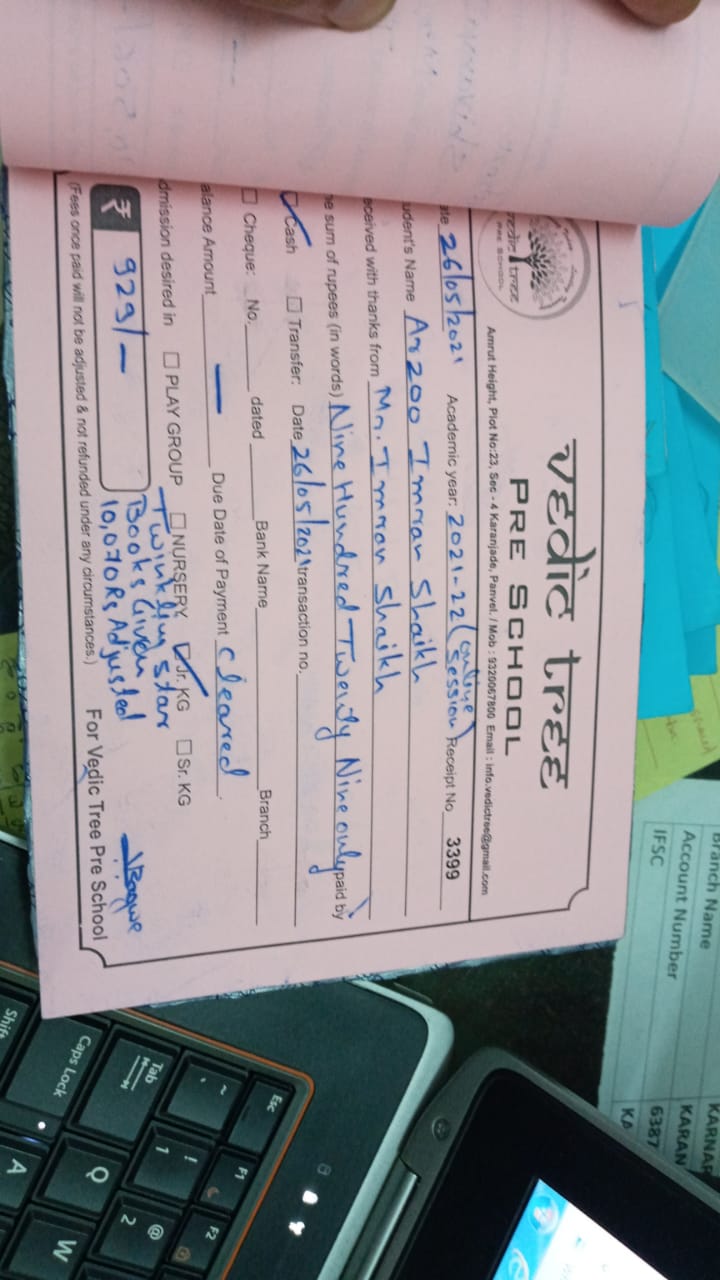 vedic tree
PRE SCHOOL
vedic tree
PRE SCHOOL
Amrut Height, Plot No:23, Sec - 4 Karanjade, Panvel. / Mob : 9320067800 Email : info.vedictree@gmail.com
ate 26/05/2021 Academic year: 2021-22 (online session) Receipt No 3399
udent's Name Arzoo Imran Shaikh
eceived with thanks from Mr. Imran Shaikh
he sum of rupees (in words) Nine Hundred Twenty Nine only paid by
Cash Transfer: Date 26/05/2021 transaction no.
Cheque: No. dated Bank Name Branch
alance Amount — Due Date of Payment cleared.
dmission desired in PLAY GROUP NURSERY Jr. KG Sr. KG
Twinkling Star
₹ 929/- Books Given
10,070 Rs Adjusted
(Fees once paid will not be adjusted & not refunded under any circumstances.) For Vedic Tree Pre School
Branch Name KARNA
Account Number KARAN
IFSC 6387
KA
Esc F1 F2
~ ! 1 @ 2
Tab Q W
Caps Lock A
Shift